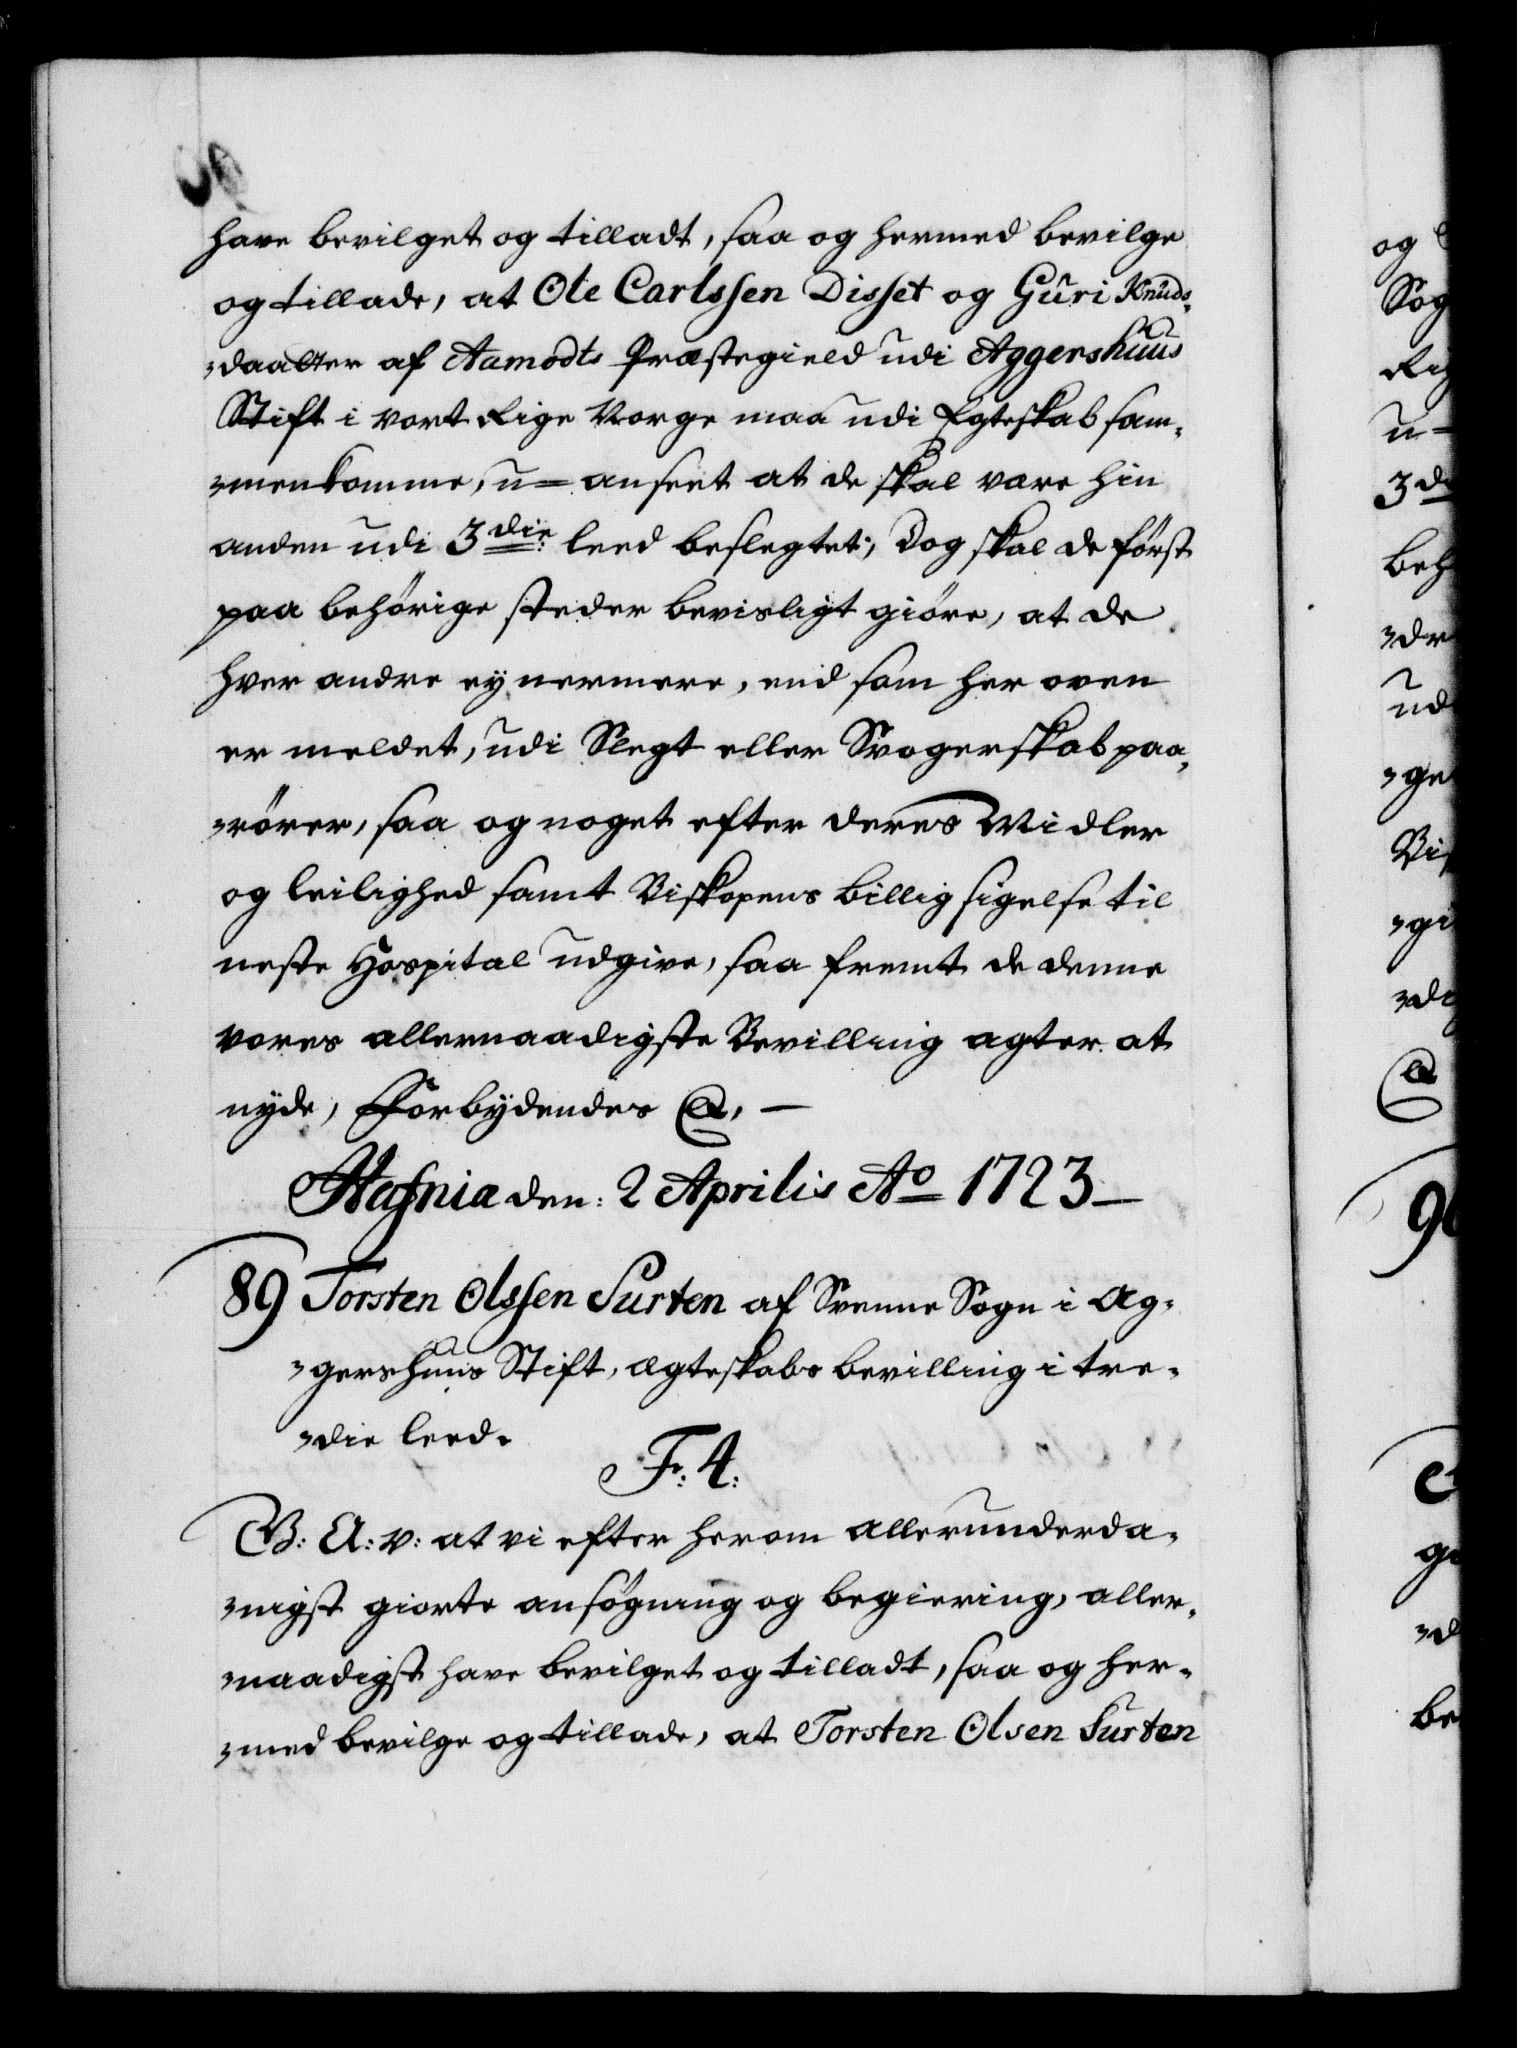 have bevilget og tilladt, saa og hermed bevilge
og tillade, at Ole Carlssen Disset og Guri Knuds-
-daatter af Aamodts Præstegield udi Aggershuus
Stift i vort Rige Norge maa udi Egteskab sam-
-menkomme, u=anseet at de skal være hin
anden udi 3die: leed beslegtet; Dog skal de først
paa behørige steder bevisligt giøre, at de
hver andre ey nermere, end som her oven
er meldet, udi Slegt eller Svogerskab paa-
-rører, saa og noget efter deres Midler
og leilighed samt Biskopens billig sigelse til
neste Hospital udgive, saa fremt de denne
vores allernaadigste Bevilling agter at
nyde, Forbydendes &. —
Hafnia den: 2 Aprilis Ao 1723 —
89 Torsten Olssen Surten af Svenne Sogn i Ag-
-gershuus Stift, ægteskabs bevilling i tre-
-die leed.
Fr: 4:
G: A: V: at vi efter herom allerunderda-
-nigst giorte ansøgning og begiering, aller-
-naadigst have bevilget og tilladt, saa og her-
-med bevilge og tillade, at Torsten Olsen Surten
og
Sog
Rig
u-
3di
beh
-dr
ud
-ge
Bis
-gi
-di
&
90
ge
-d
be